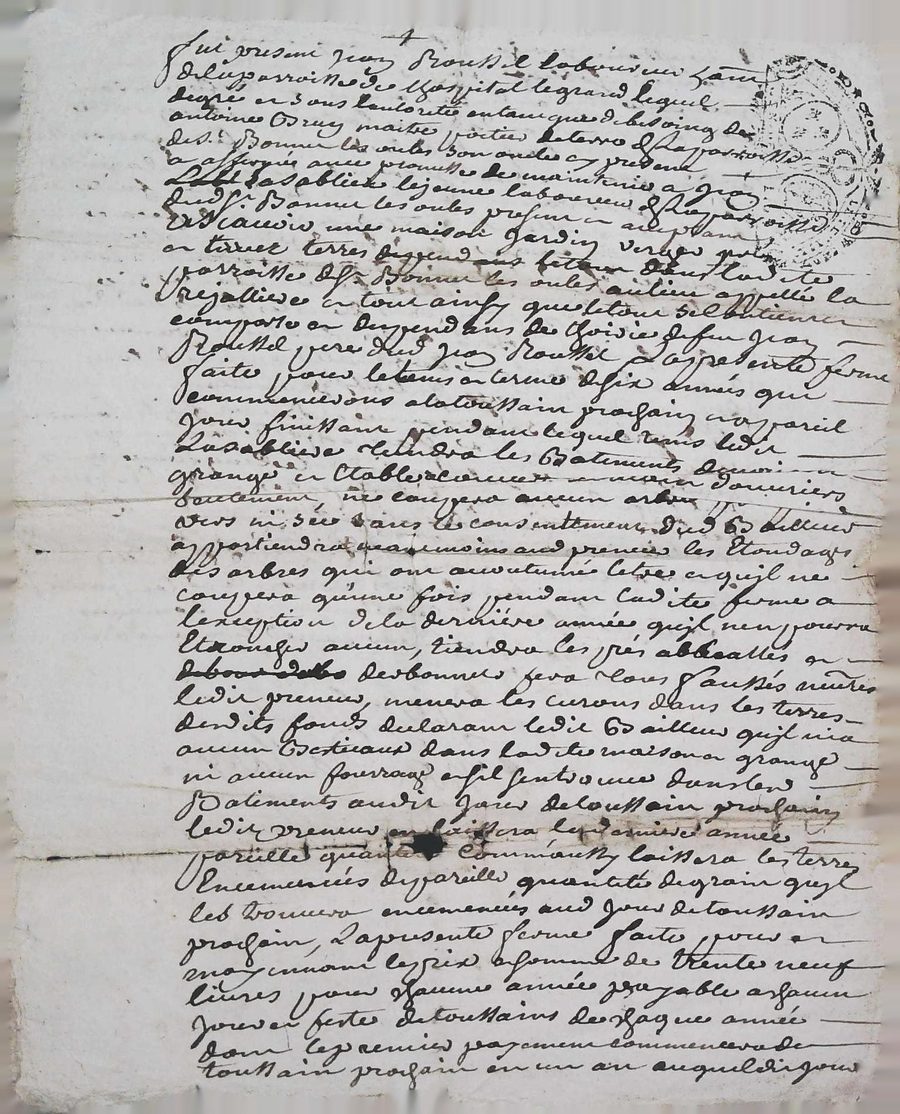 fut present Jean Roussel laboureur habt
de la parroisse de Lhospital le grand lequel
degré et sous lautorité entant que de besoing de
antoine Brun maitre potier de terre de la parroisse
de St Bonnet les oules son oncle cy present
a affermé avec promesse de maintenir a Jean
Lasabliere le jeune laboureur de la parroisse
dud St Bonnet les oules present et acceptant
Scavoir une maison Jardin verger prés
et terres dans ladite
parroisse de St Bonnet les oules au lieu appellé la
rejalliere et tout ainsy que letout se contient
comporte et despend ans de hoirie de feu Jean
Roussel pere dud Jean Roussel la presente ferme
faite pour le tems et terme de six années qui
commenceront a la toussain prochain et a pareil
jour finissant pendant lequel tems ledit
Lasabliere tiendra les Batiments
grange et Etable couverts a main douvriers
seulement, ne coupera aucun arbre
vert ni sec sans le consentement dud Bailleur
appartiendra neanmoins aud preneur les Etondages
des arbres qui ont accoutumé letre et quil ne
coupera quune fois pendant ladite ferme a
lexception de la derniere année quil nen pourra
Etronger aucun, tiendra les prés abbeallés et
derbonnés fera tous faussés neufs
ledit preneur, menera les curons dans les terres
desdits fonds declarant ledit Bailleur quil nia
aucun Bestiaux dans ladite maison et grange
ni aucun fourrage et sil sentrouve dans led
Batiments audit Jour de toussain prochain
ledit preneur en laissera la derniere année
pareille quantité Comme aussy laissera les terres
Encemencés de pareille quantité de grain quil
les trouvera encemencés aud Jour de toussain
prochain, La presente ferme faite pour et
moyennant le prix et somme de trente neuf
livres pour chacune année payable a chacun
jour et feste de toussains de chaque année
dont le premier payement commencera de
toussain prochain en un an auquel dit jour